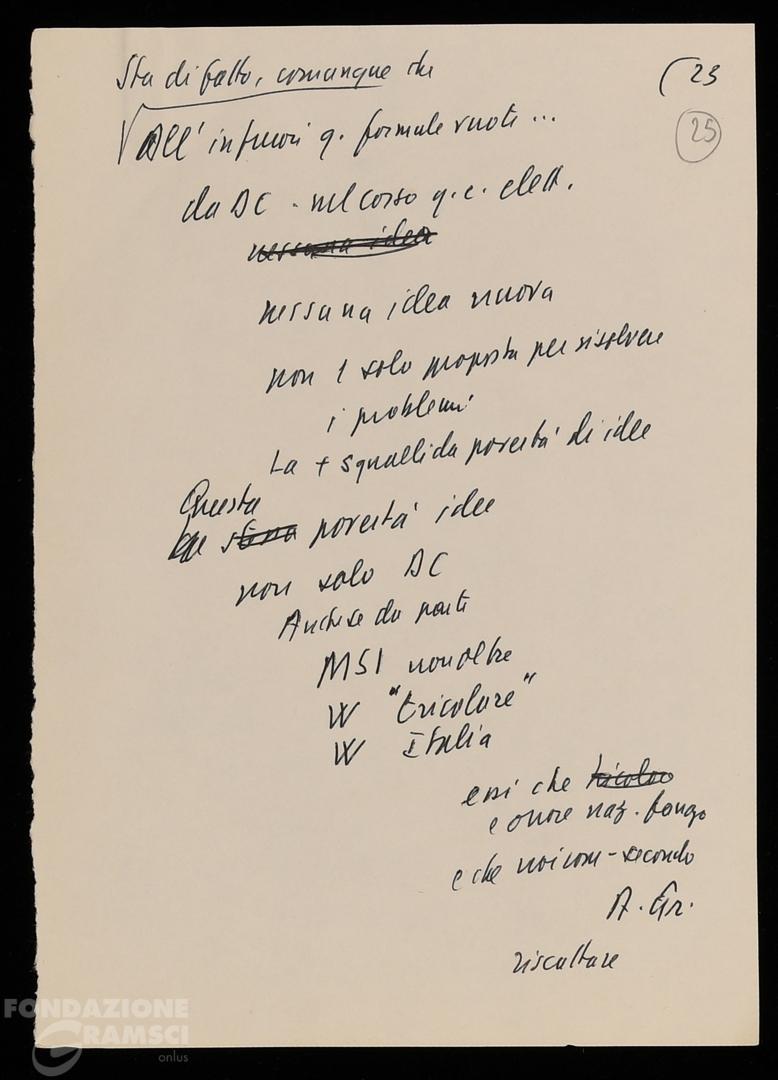 Sta di fatto, comunque che
(25
25
All'infuori q. formule vuote ...
da DC - nel corso q. c. elett.
nessuna idea
nessuna idea nuova
non 1 solo proposta per risolvere
i problemi
La + squallida povertà di idee
Questa
povertà idee
non solo DC
Anche da parte
MSI non oltre
W "tricolore"
W Italia
così che tricolore
e onore naz. fango
e che noi com - secondo
A.
riscattare
FONDAZIONE
GRAMSCI
onlus